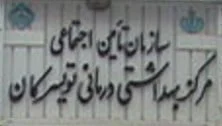 سازمان تأمین اجتماعی
مرکز بهداشتی درمانی تویسرکان